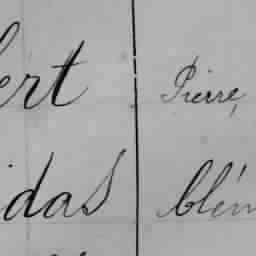 ert Pierre,
idas Clém